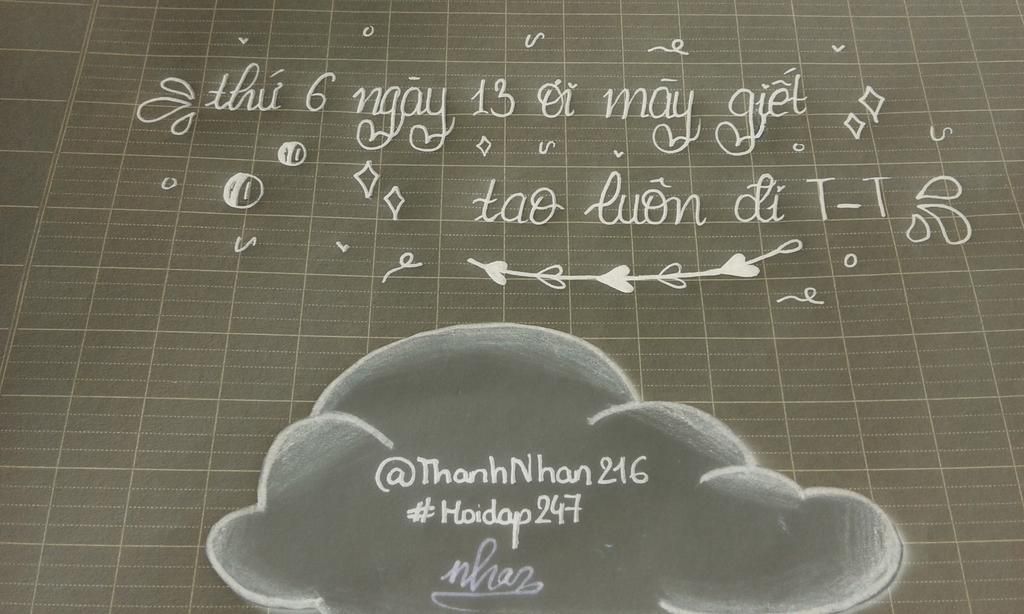 thứ 6 ngày 13 ơi mày giết
tao luôn đi T-T
@ThanhNhan216
#Hoidap247
nhaz